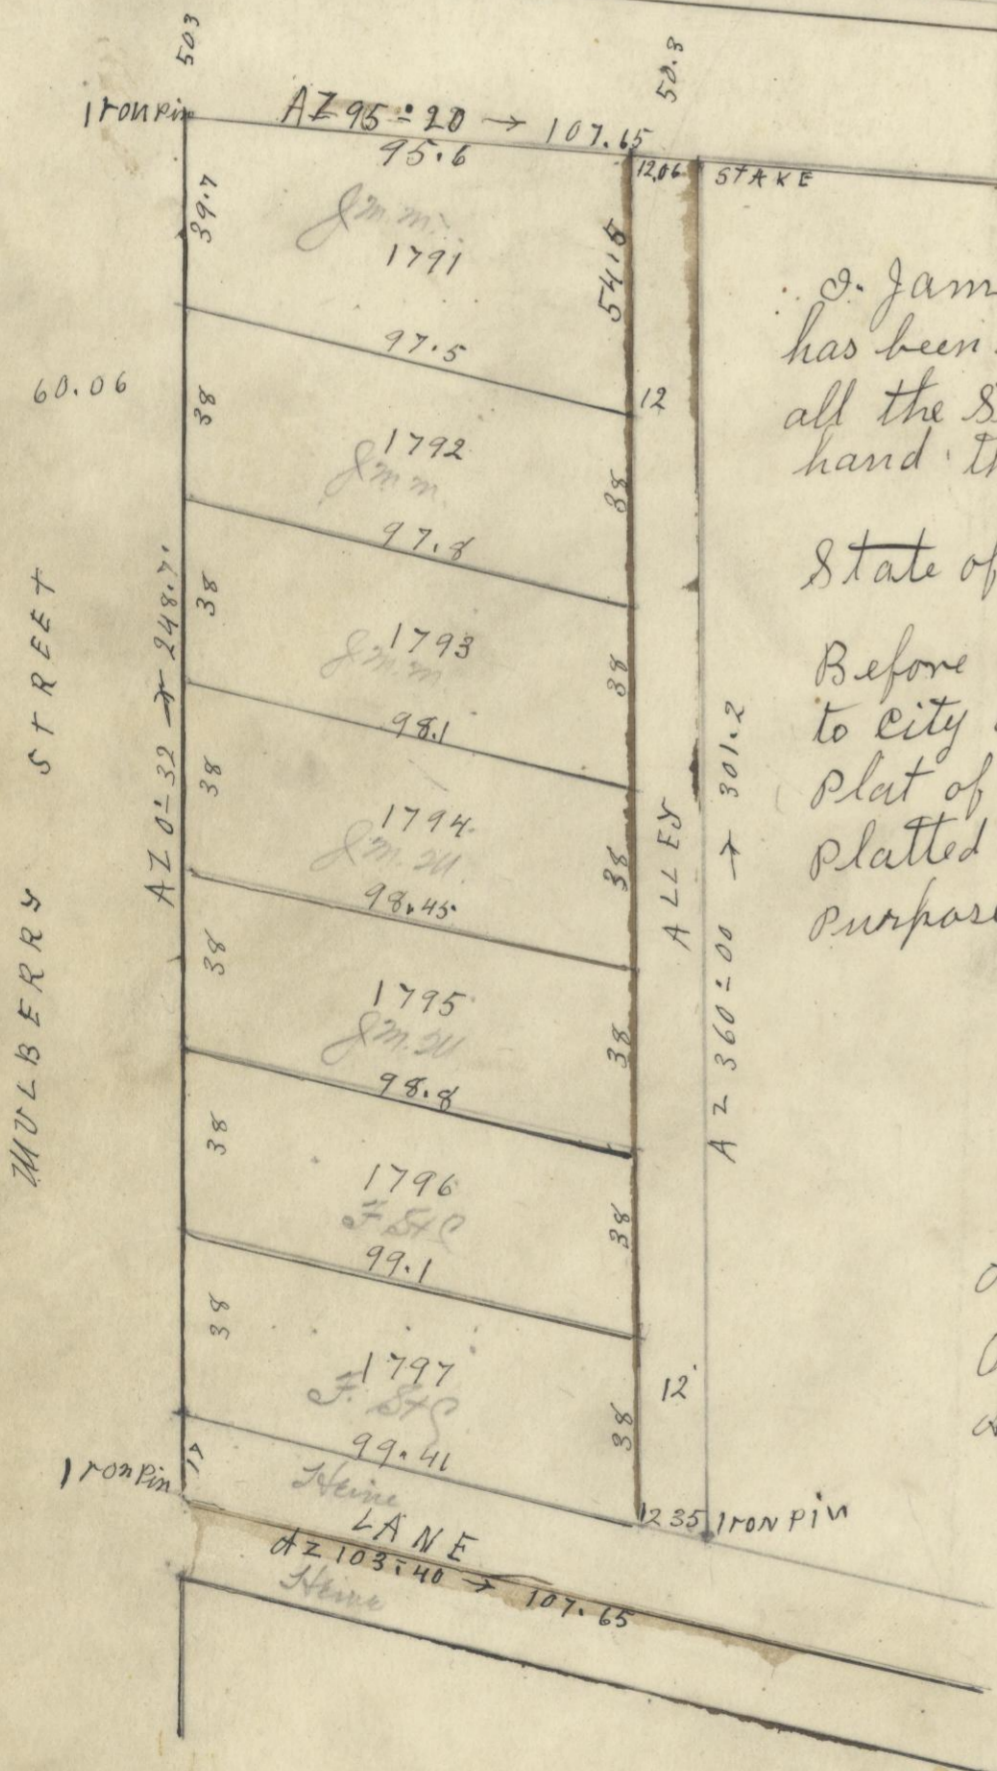 503
50.3
Iron Pin
AZ 95÷20 → 107.65
95.6
12.06
STAKE
39.7
J.m.m.
1791
54.5
97.5
60.06
38
12
1792
J.m.m.
38
97.8
38
1793
J.m.m
38
98.1
MULBERRY STREET
AZ 0÷32 → 248.7
38
1794
J.M.M.
38
98.45
ALLEY
AZ 360÷00 → 301.2
38
1795
J.M.M
38
98.8
38
1796
F St C
38
99.1
38
1797
F. St C
38
12
99.41
17
Iron Pin
Heine
12 35
IRON PIN
LANE
AZ 103÷40 → 107.65
Heine
I. Jam
has been
all the S
hand th
State of
Before
to City
Plat of
Platted
Purpose